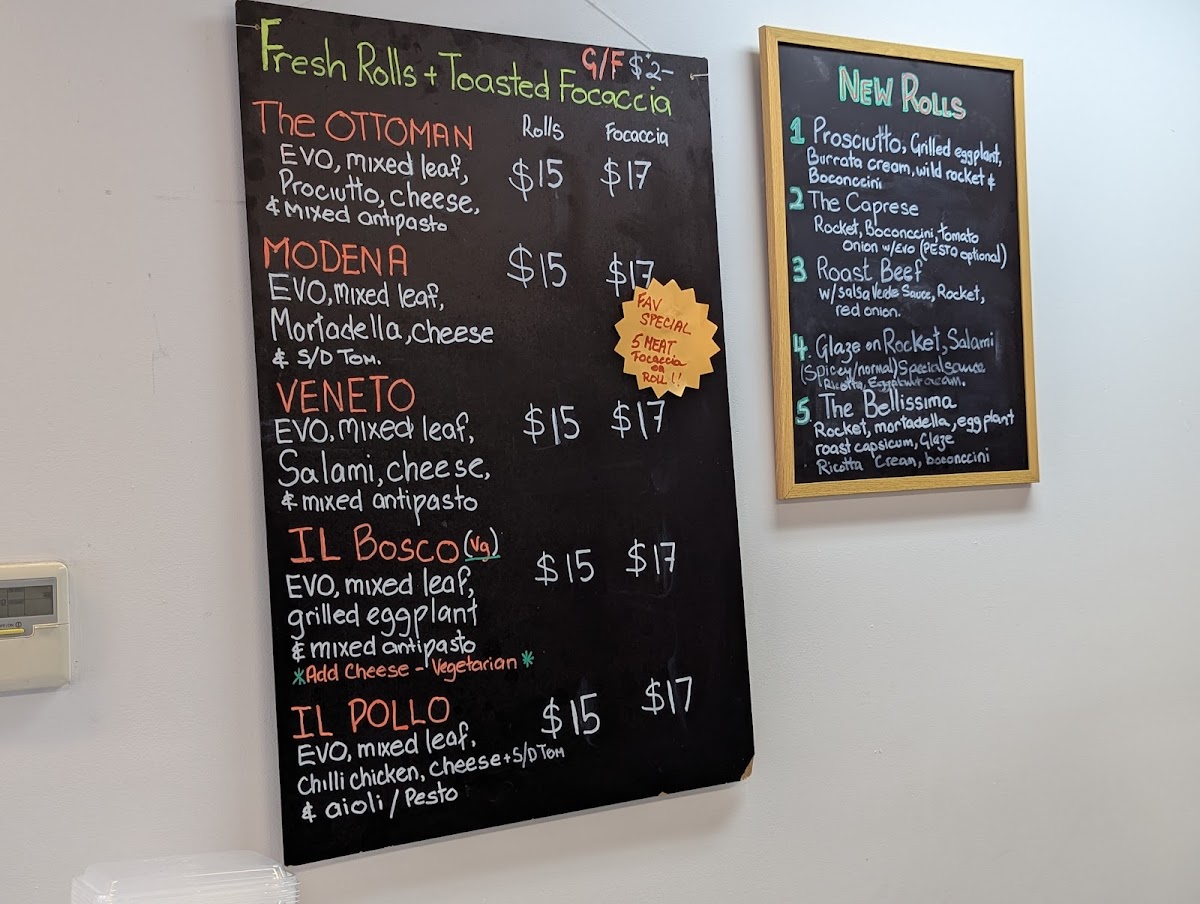 Fresh Rolls + Toasted Focaccia
G/F $2-
Rolls Focaccia
The OTTOMAN
$15 $17
EVO, mixed leaf,
Prociutto, cheese,
& mixed antipasto
MODENA
$15 $17
EVO, mixed leaf,
Mortadella, cheese
& S/D TOM.
FAV
SPECIAL
5 MEAT
Focaccia
OR
ROLL !!
VENETO
$15 $17
EVO, mixed leaf,
Salami, cheese,
& mixed antipasto
IL Bosco (Vg)
$15 $17
EVO, mixed leaf,
grilled eggplant
& mixed antipasto
*Add Cheese - Vegetarian *
IL POLLO
$15 $17
EVO, mixed leaf,
chilli chicken, cheese + S/D TOM
& aioli / Pesto
NEW ROLLS
1 Prosciutto, Grilled eggplant,
Burrata cream, wild rocket &
Boconccini
2 The Caprese
Rocket, Boconccini, tomato
onion w/Evo (PESTO optional)
3 Roast Beef
w/salsa Verde Sauce, Rocket,
red onion.
4. Glaze on Rocket, Salami
(Spicey/normal) Special sauce
Ricotta, cream.
5 The Bellissima
Rocket, mortadella, eggplant
roast capsicum, Glaze
Ricotta Cream, boconccini